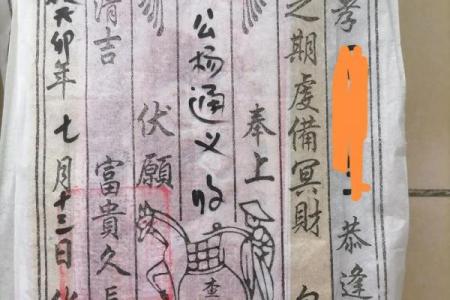 孝 恭逢
之期虔備冥財
奉上
公杨通义收
查
伏願
清吉 富貴久長
癸卯年七月十三日